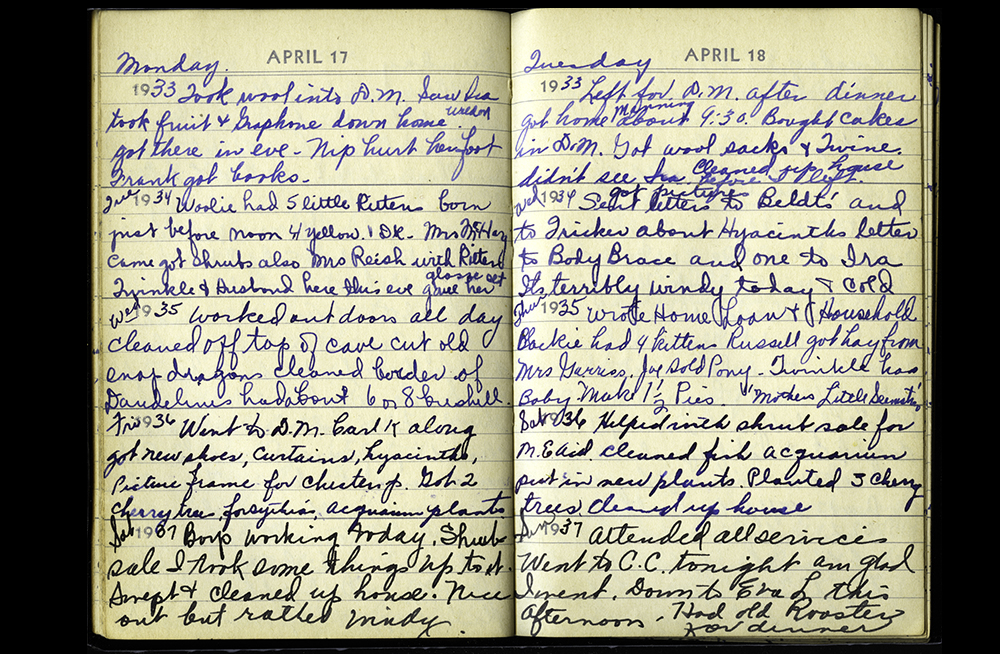 APRIL 17
Monday.
1933 Took wool into D.M. Saw Ira
took fruit & Graphone down home
got there in eve - Nip hurt her foot
Frank got books -
Tue 1934 Woolie had 5 little Kittens born
just before noon 4 yellow. 1 DK - Mrs McHarg
came got shrubs also Mrs Reish with Kittens
glasse set
Twinkle & Husband here this eve gave her
Wed 1935 worked out doors all day
cleaned off top of cave cut old
snap dragons cleaned border of
Dandelines had about 6 or 8 bushell.
Fri 1936 Went to D.M. Earl K along
got new shoes, curtains, hyacinths,
Picture frame for chester p. Got 2
cherry trees, forsythia, acquarium plants
Sat 1937 Boys working today. Shrub
sale I took some things up to it.
Swept & cleaned up house. Nice
out but rather windy.
APRIL 18
Tuesday
1933 Left for D.M. after dinner
got home about 9:30. Bought cakes
in D.M. Got wool sacks & Twine.
Cleaned up house
didn't see Ira before I left.
got pictures
Wed 1934 Sent letters to Beldt's and
to Tricker about Hyacinths letter
to Body Brace and one to Ira
Its terribly windy today & cold
Thur 1935 wrote Home Loan & Household
Blackie had 4 kittens Russell got hay from
Mrs Garriss. Joy sold Pony - Twinkle has
Baby Make 1 1/2 Pies. "Mothers Little
Sat 1936 Helped with shrub sale for
M.E aid. cleaned fish acquarium
put in new plants. Planted 3 cherry
trees cleaned up house
Sun 1937 Attended all services
Went to C.C. tonight am glad
I went. Down to Eva L this
afternoon. Had old Rooster
for dinner